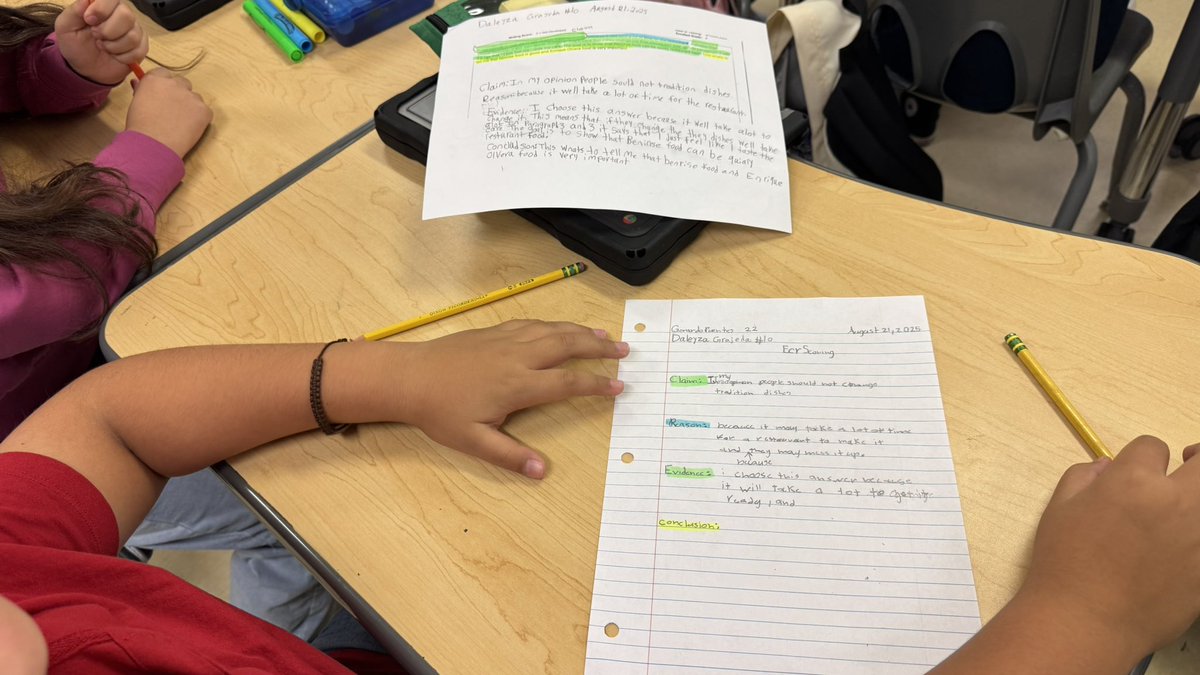 Daleyza Grajeda #10 August 21, 2025
Claim
Claim: In my opinion people sould not tradition dishes
Reason: because it well take a lot of time for the restaurants
Evidence: I choose this answer because it well take alot to
change it. This means that if they change the they dishes well take
Paragraph 3 and 3 it says that I just feel like I taste the
The goal is to show that Benirse food can be
resturant food.
Concladsion: This whats to tell me that benrise food and Enrique
Olvera food is very important
DIXON TICONDEROGA
22 August 21, 2025
Daleyza Grajeda #10
Ecr Scoving
Claim: In my people should not change
tradition dishes
Reason: because it may take a lot of time
for a restaurant to make it
and they may mess it up.
because
Evidence: i choose this answer because
it will take a lot to get it
ready, and
Conclusion: